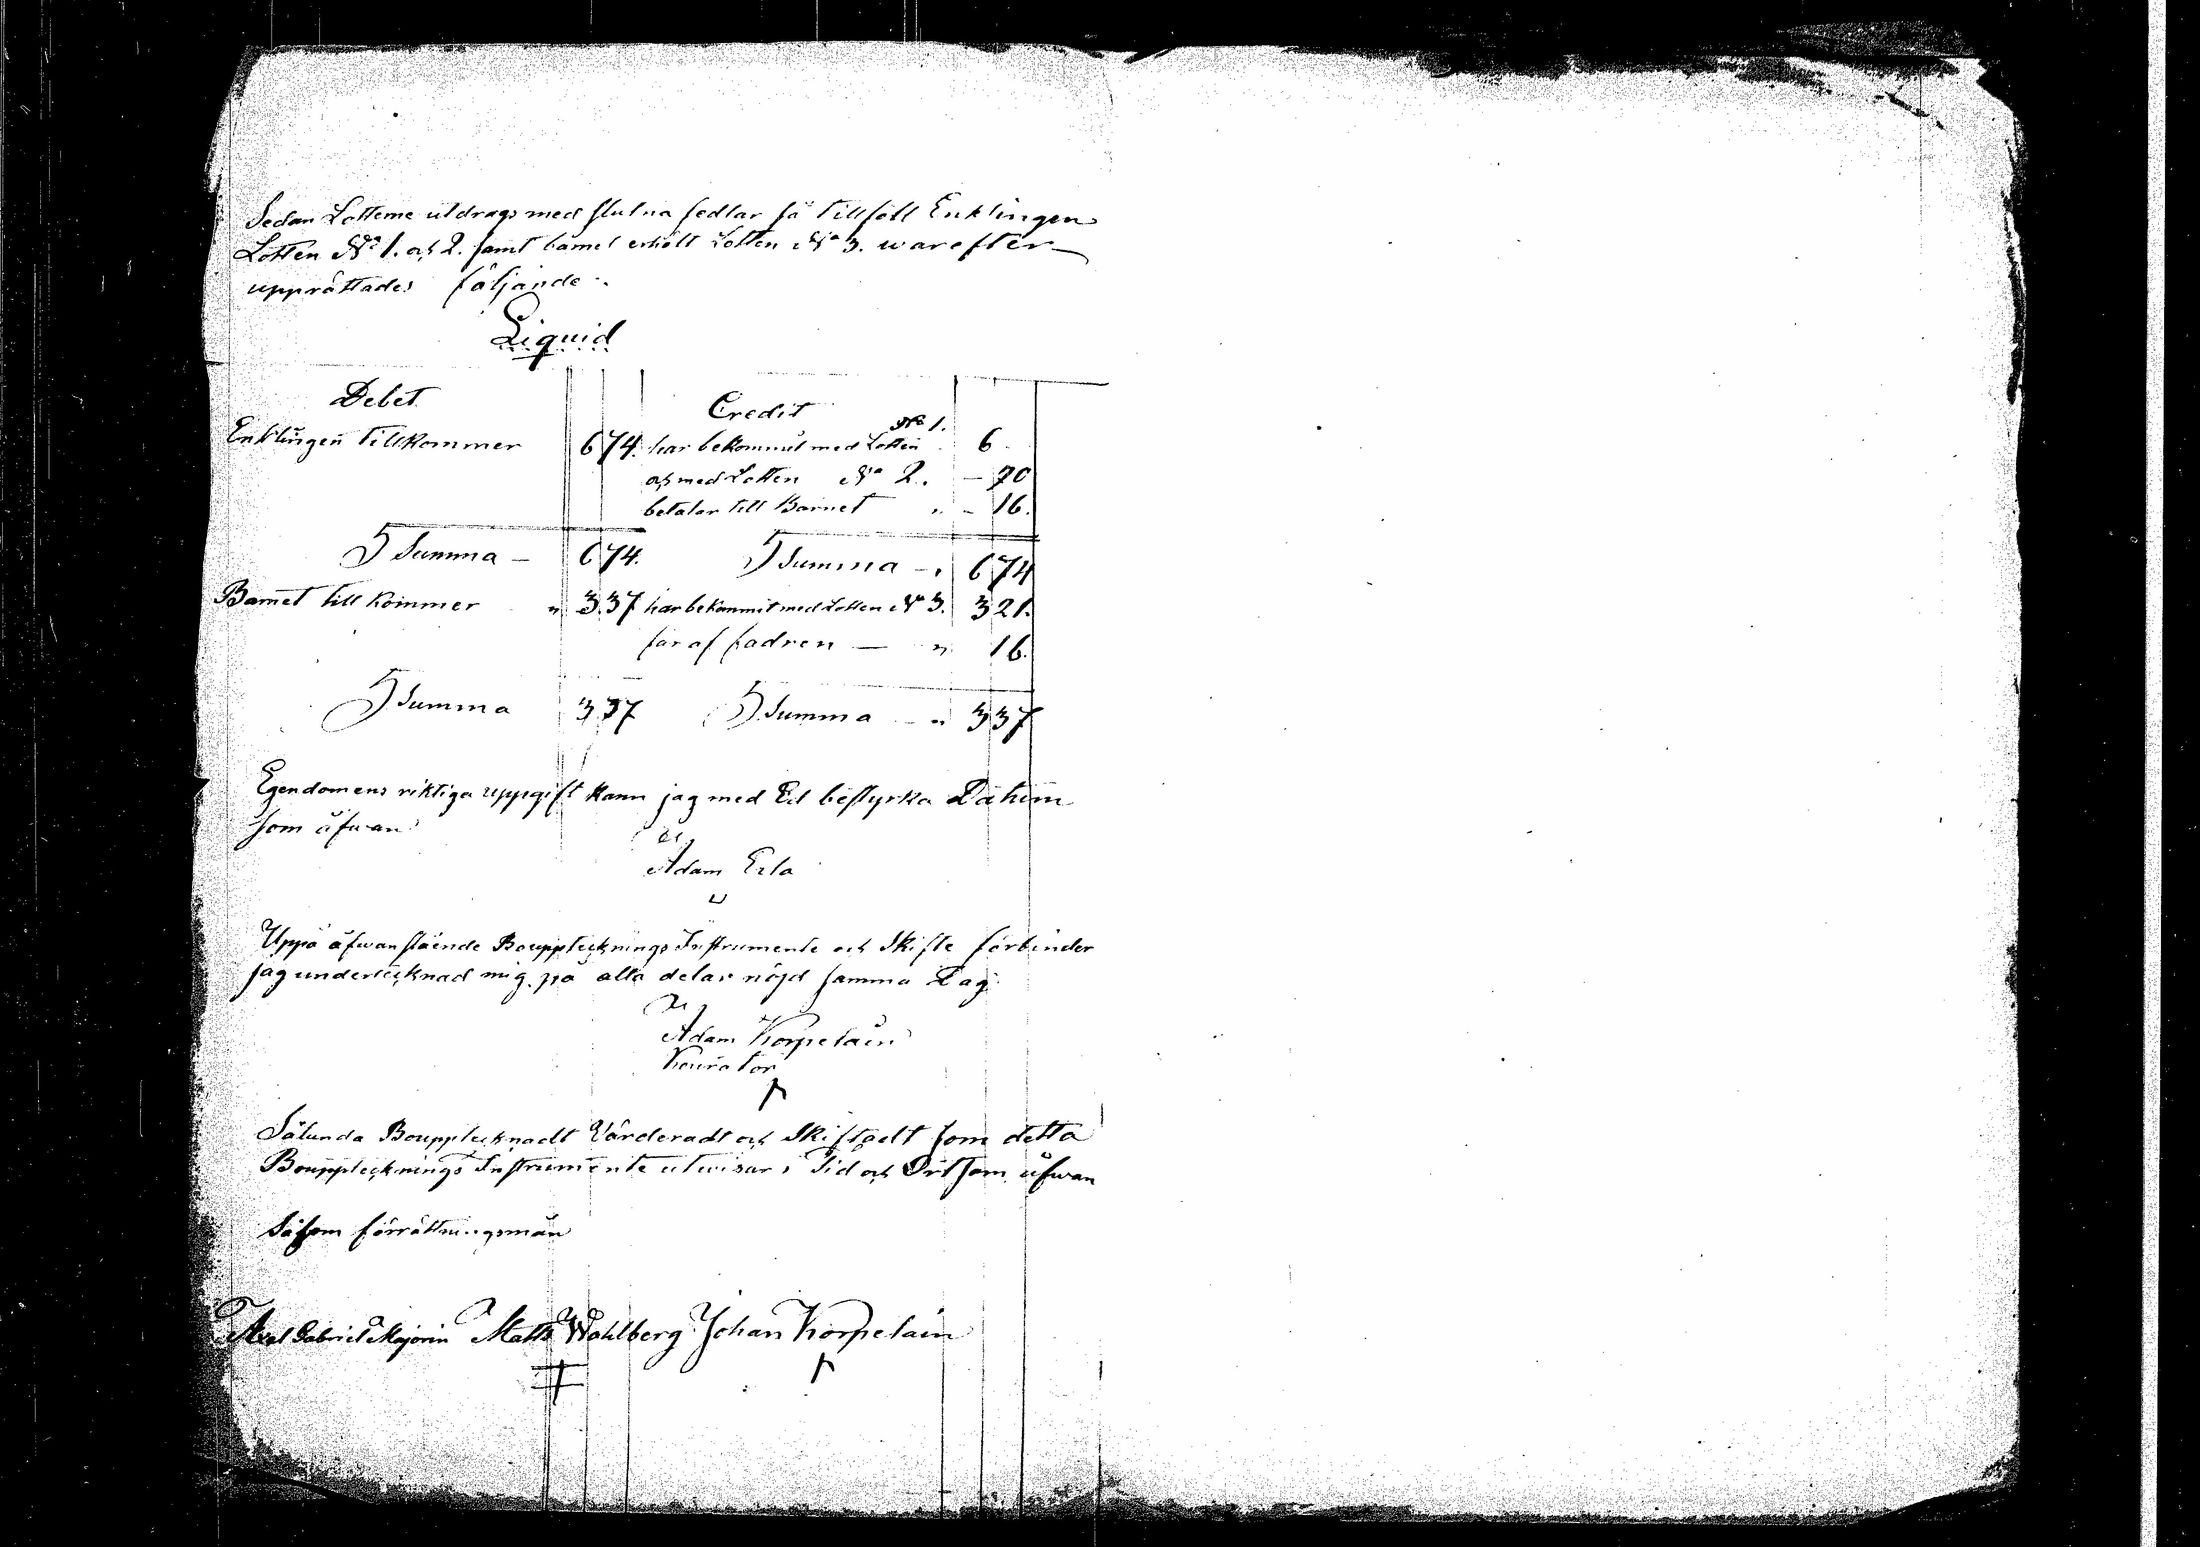 Sedan Lotterne utdrags med slutna sedlar så tillföll Enklingen
Lotten No 1. och 2. samt barnet erhölt Lotten No 3. warefter
upprättades följande.
Liquid
Debet Credit
No 1.
Enklingen tillkommer 674. har bekommit med Lotten 6
och med Lotten No 2. – 70
betalar till Barnet " – 16.
Summa – 674. Summa – 674
Barnet till kommer " 3.37 har bekommit med Lotten No 3. 321.
får af fadren — " 16.
Summa 337 Summa – " 337
Egendomens riktiga uppgift kann jag med Ed bestyrka
som åfwan
Adam Erla
Uppå åfwanstående Bouppteknings Instrumente och Skifte förbinder
jag undertecknad mig på alla delar nöjd samma Dag
Adam Korpelain
Kurator
Sålunda Bouppteknadt Värderadt och Skiftadt som detta
Bouppteknings Instrumente utwisar, Tid och Ort som åfwan
Såsom förrättningsmän
Axel Gabriel Majorin Matts Wahlberg Johan Korpelain